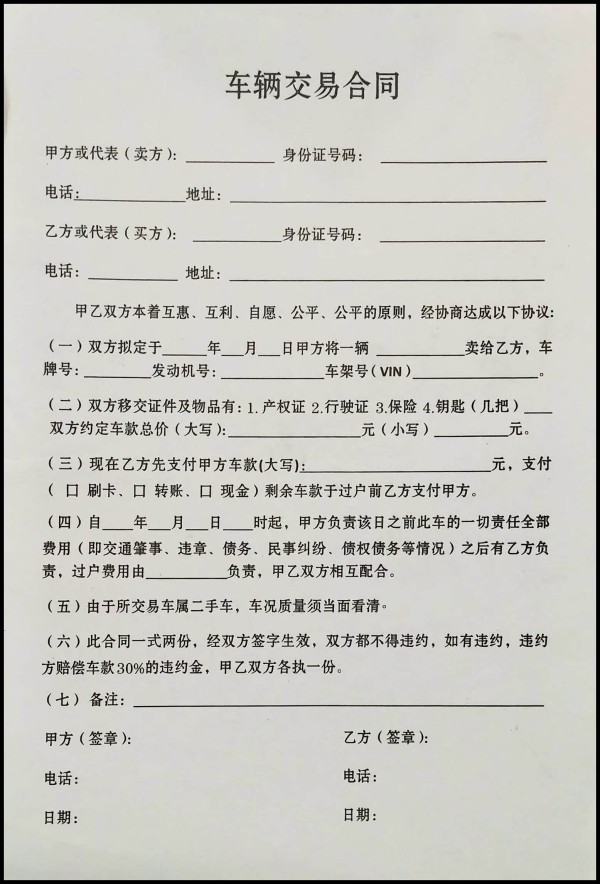 车辆交易合同
甲方或代表（卖方）：________ 身份证号码：______________
电话：__________地址：____________________________
乙方或代表（买方）：________ 身份证号码：______________
电话：________ 地址：____________________________
甲乙双方本着互惠、互利、自愿、公平、公平的原则，经协商达成以下协议：
（一）双方拟定于____年__月__日甲方将一辆 ________卖给乙方，车
牌号：______发动机号：__________车架号（VIN）___________。
（二）双方移交证件及物品有：1. 产权证 2.行驶证 3.保险 4.钥匙（几把）__
双方约定车款总价（大写）：____________元（小写）______元。
（三）现在乙方先支付甲方车款(大写)：________________元，支付
（ 口 刷卡、口 转账、口 现金）剩余车款于过户前乙方支付甲方。
（四）自__年__月__日__时起，甲方负责该日之前此车的一切责任全部
费用（即交通肇事、违章、债务、民事纠纷、债权债务等情况）之后有乙方负
责，过户费用由_______负责，甲乙双方相互配合。
（五）由于所交易车属二手车，车况质量须当面看清。
（六）此合同一式两份，经双方签字生效，双方都不得违约，如有违约，违约
方赔偿车款30%的违约金，甲乙双方各执一份。
（七）备注：____________________________________
甲方（签章）： 乙方（签章）：
电话： 电话：
日期： 日期：